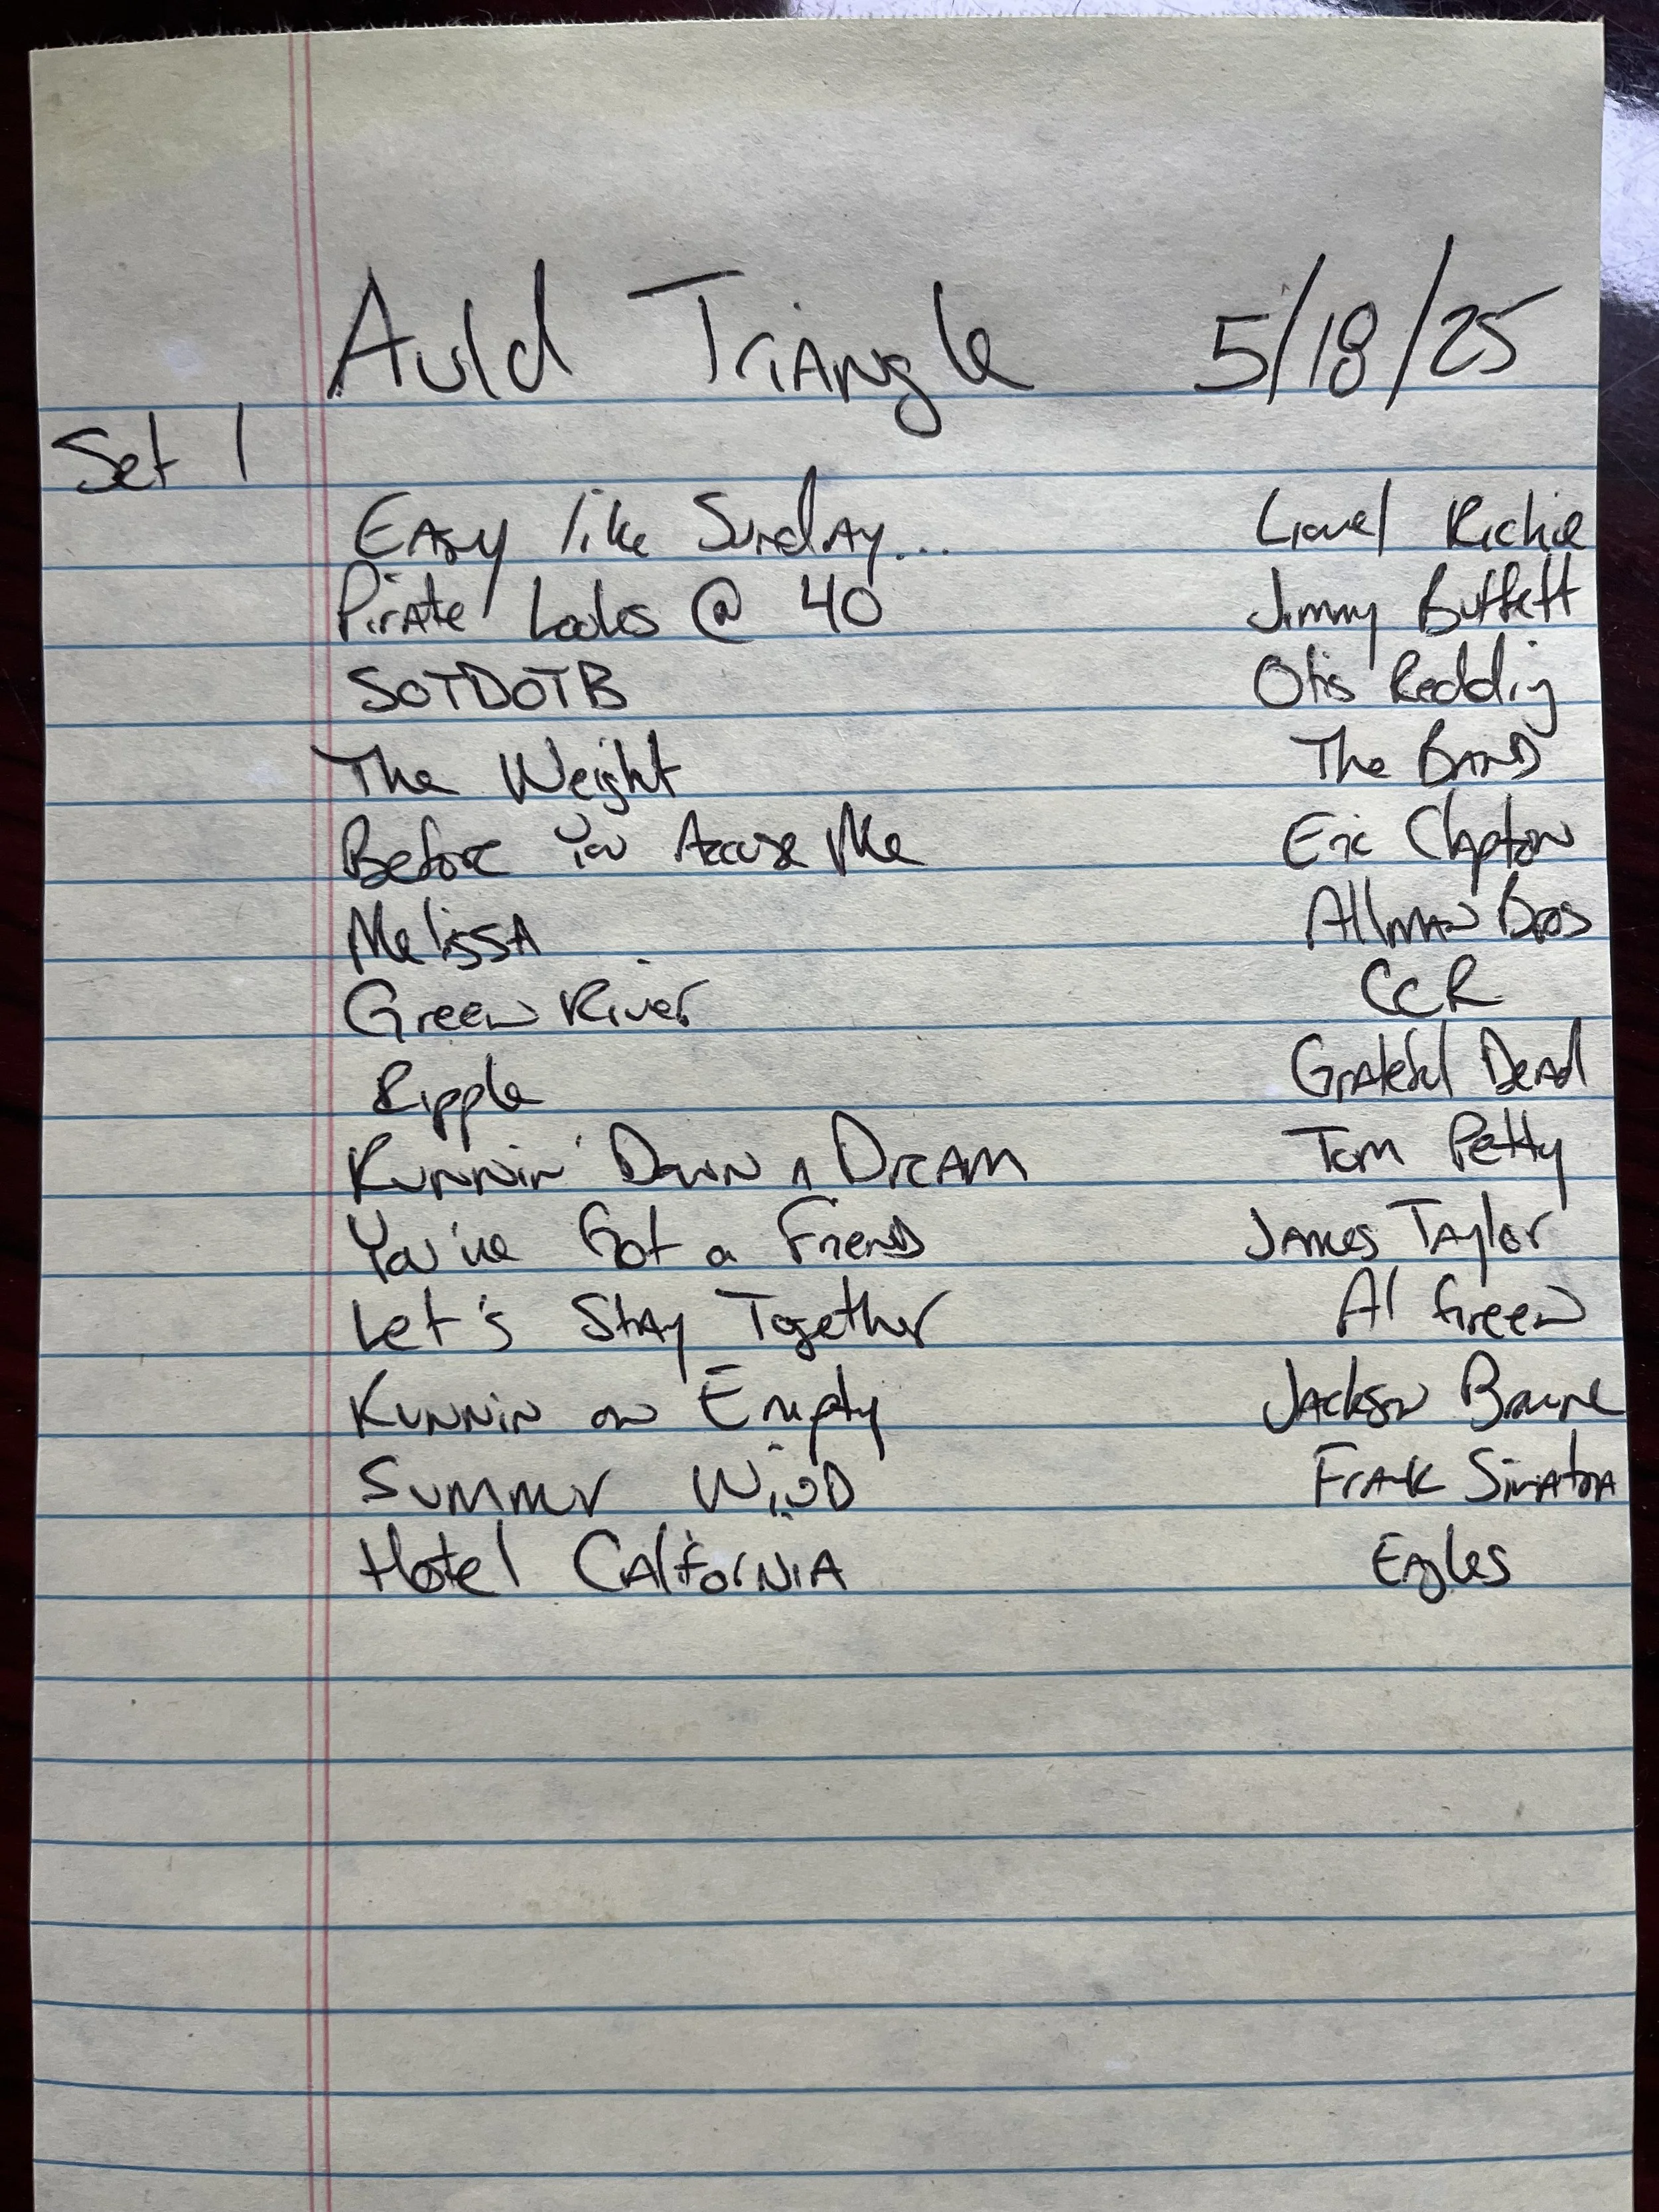 Auld Triangle 5/18/25
Set 1
Easy like Sunday... Lionel Richie
Pirate Looks @ 40 Jimmy Buffett
SOTDOTB Otis Redding
The Weight The Band
Before You Accuse Me Eric Clapton
Melissa Allman Bros
Green River CCR
Ripple Grateful Dead
Runnin' Down A Dream Tom Petty
You've Got a Friend James Taylor
Let's Stay Together Al Green
Runnin on Empty Jackson Browne
Summer Wind Frank Sinatra
Hotel California Eagles